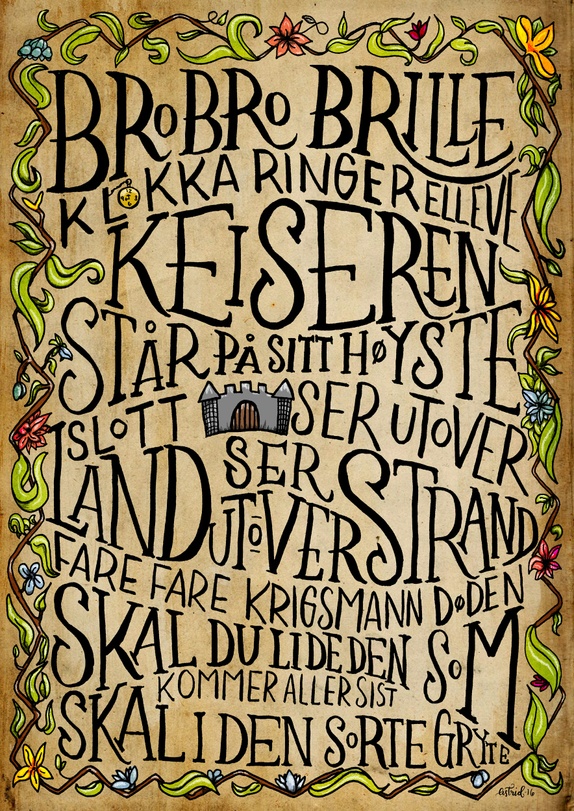 BROBRO BRILLE
KLOKKA RINGER ELLEVE
KEISEREN
STÅR PÅ SITT HØYSTE
SLOTT SER UTOVER
LAND SER UTOVER STRAND
FARE FARE KRIGSMANN DØDEN
SKAL DU LIDE DEN SOM
KOMMER ALLER SIST
SKAL I DEN SORTE GRYTE
astrid-16